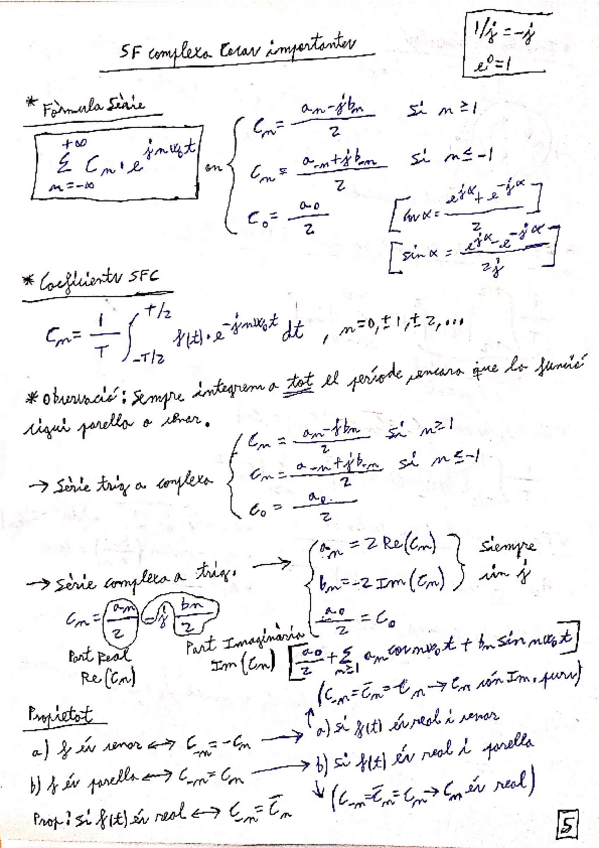 SF complexa coses importantes
1/j = -j
e⁰ = 1
* Fórmula Sèrie
+∞
Σ Cₙ · e^{jnω₀t}
n=-∞
on
Cₙ = (aₙ - jbₙ)/2 si n ≥ 1
Cₙ = (a₋ₙ + jb₋ₙ)/2 si n ≤ -1
C₀ = a₀/2
[cos α = (e^{jα} + e^{-jα})/2]
[sin α = (e^{jα} - e^{-jα})/2j]
* Coeficients SFC
Cₙ = 1/T ∫_{-T/2}^{T/2} f(t) · e^{-jnω₀t} dt , n=0, ±1, ±2, ...
* Observació: Sempre integrem a tot el període encara que la funció
sigui parella o senar.
→ Sèrie trig a complexa
Cₙ = (aₙ - jbₙ)/2 si n ≥ 1
Cₙ = (a₋ₙ + jb₋ₙ)/2 si n ≤ -1
C₀ = a₀/2
→ Sèrie complexa a trig. →
aₙ = 2 Re(Cₙ)
bₙ = -2 Im(Cₙ)
a₀/2 = C₀
Siempre
sin j
Cₙ = aₙ/2 - j bₙ/2
Part Real
Re(Cₙ)
Part Imaginària
Im(Cₙ)
[a₀/2 + Σ_{n≥1} aₙ cos nω₀t + bₙ sin nω₀t]
Propietat
(C₋ₙ = C̄ₙ = -Cₙ → Cₙ són Im. purs)
a) f és senar ↔ C₋ₙ = -Cₙ → a) si f(t) és real i senar
b) f és parella ↔ C₋ₙ = Cₙ → b) si f(t) és real i parella
(C₋ₙ = C̄ₙ = Cₙ → Cₙ és real)
Prop: Si f(t) és real ↔ C₋ₙ = C̄ₙ
5